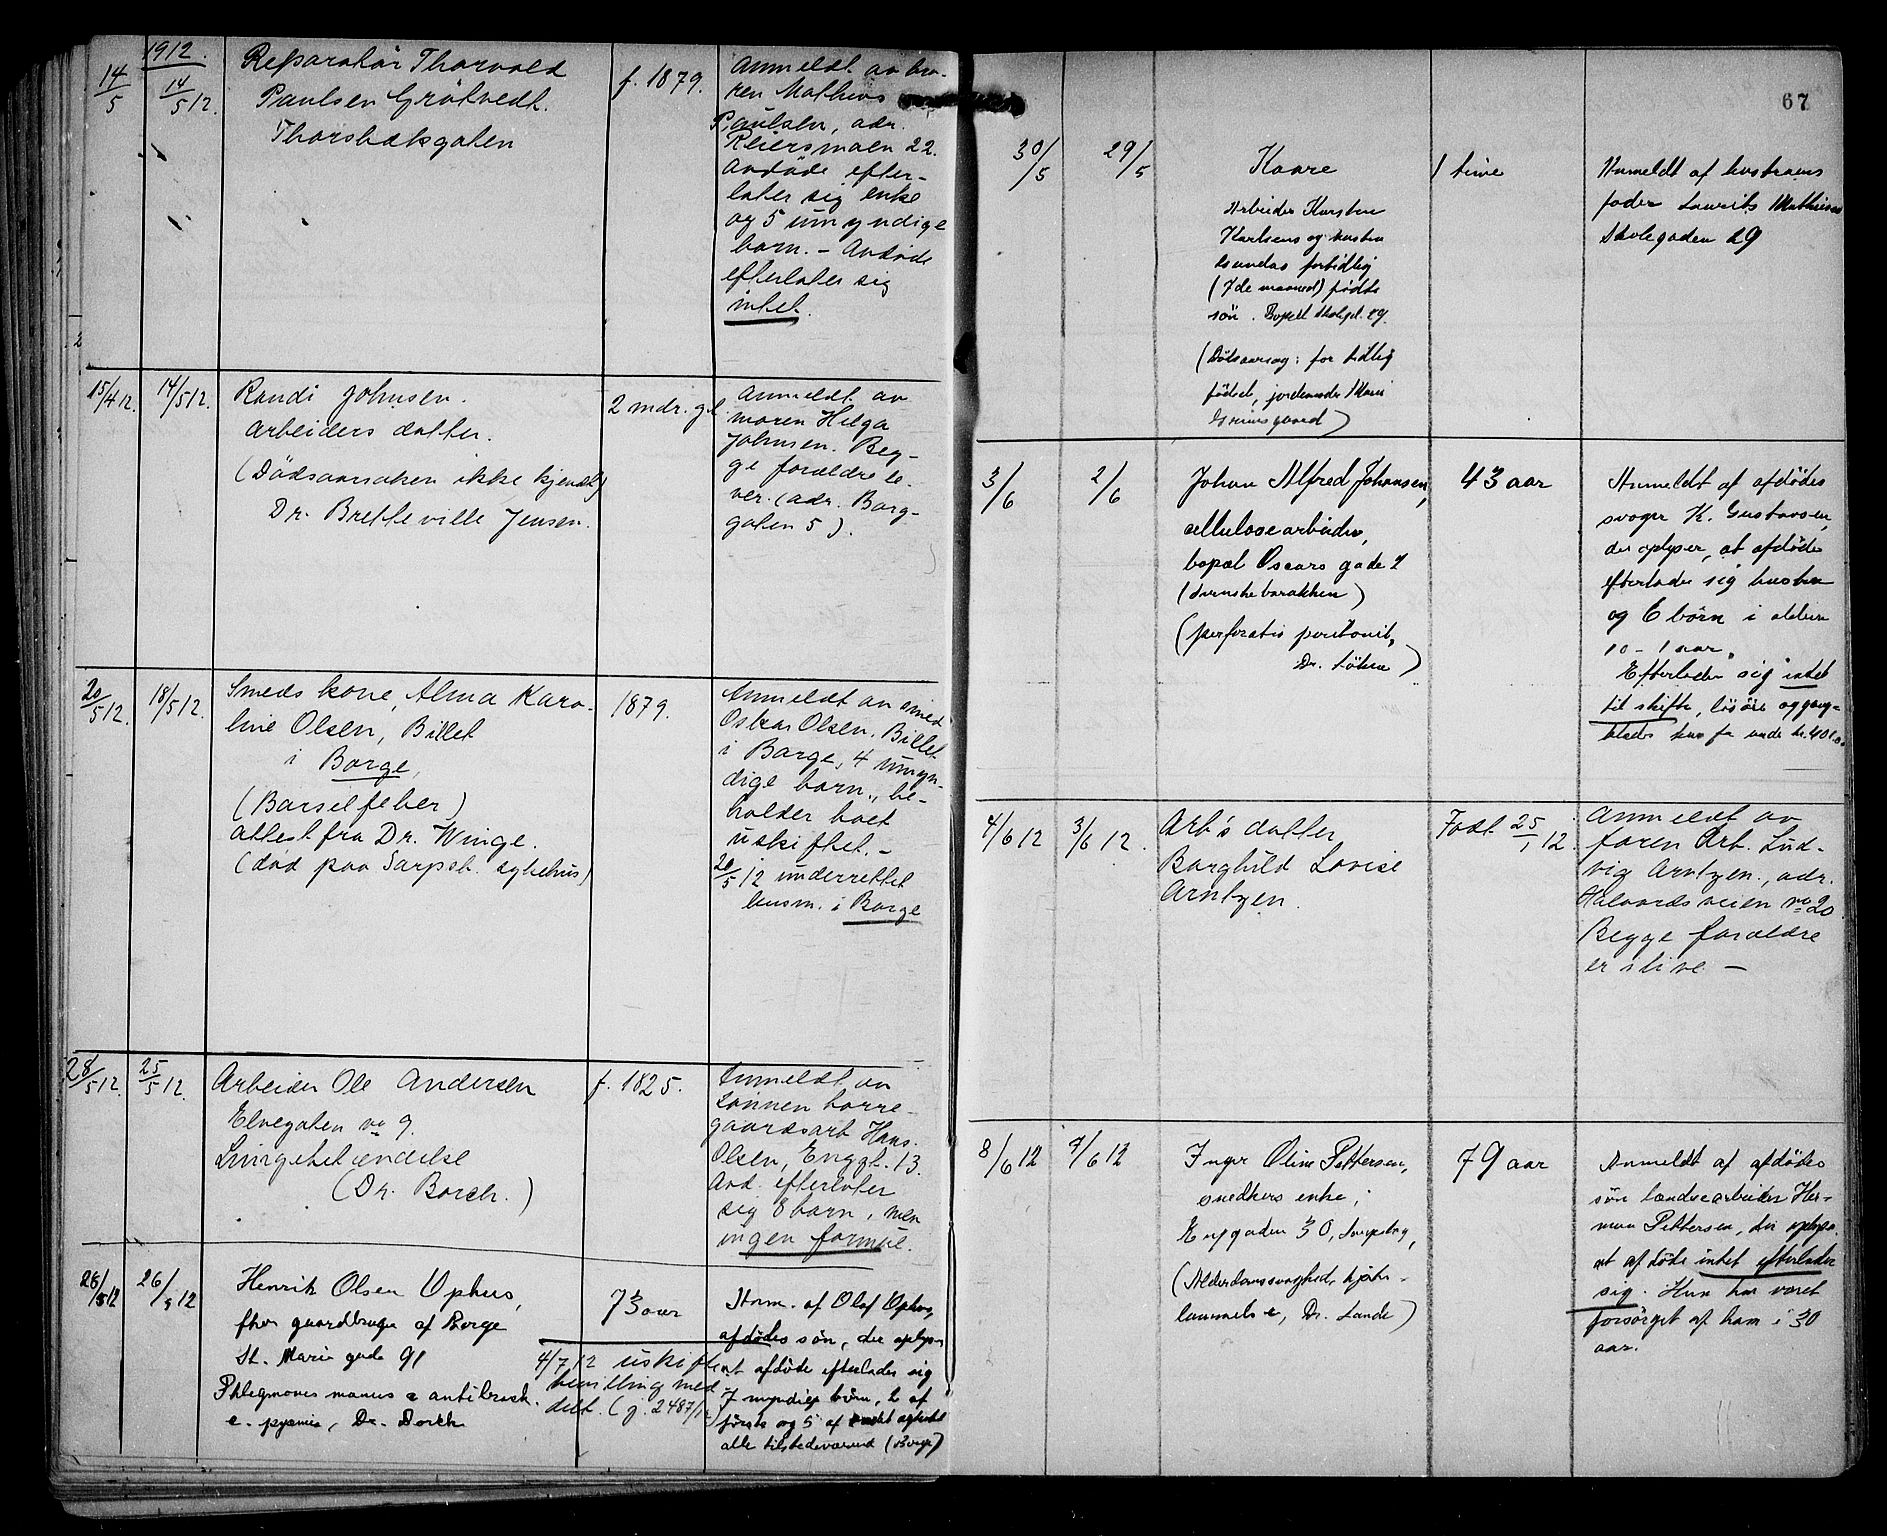 1912.
14/5
14/5 12.
Reparatør Thorvald
Paulsen Grötvedt.
Thorsbæksgaten
f. 1879.
Anmeldt av bro-
ren Mathias
Paulsen, adr.
Reiersmoen 22.
Avdöde efter-
later sig enke
og 5 umyndige
barn. - Avdöde
efterlater sig
intet.
15/4 12.
14/5 12.
Randi Johnsen.
Arbeiders datter.
(Dödsaarsaken ikke kjendt)
Dr. Bretteville Jensen.
2 mdr. gl.
Anmeldt av
moren Helga
Johnsen. Beg-
ge forældre le-
ver. (adr. Borg-
gaten 5).
20/5 12.
18/5 12.
Smeds kone, Alma Karo-
line Olsen, Billet
i Borge,
(Barselfeber)
attest fra Dr. Winge.
(död paa Sarpsb. sykehus)
1879.
Anmeldt av smed
Oskar Olsen, Billet
i Borge, 4 umyn-
dige barn, be-
holder boet
uskiftet. -
20/5 12 underrettet
lensm. i Borge
28/5 12.
25/5 12.
Arbeider Ole Andersen
Elvegaten no 9.
Lungebetændelse
(Dr. Borch.)
f. 1825.
Anmeldt av
sönnen borre-
gaardsarb Hans
Olsen, Enggt. 13.
Avd. efterlater
sig 8 barn, men
ingen formue.
28/5 12
26/5 12
Henrik Olsen Ophus,
fhv gaardbruger af Borge
St. Marie gade 91
Phlegmones manus & antibrach.
e. pyæmie, Dr. Borch
73 aar
4/7 12 uskifte
bevilling med-
delt. (g. 2487/12)
Anm. af Olaf Ophus,
afdødes søn, der oplyser
at afdöde efterlader sig
7 myndige börn, 2 af
förste og 5 af andet ægteskab
alle tilstedeværend (Borge)
67
30/5
29/5
Kaare
Arbeider Karsten
Karlsens og hustru
fortidlig
(7de maaned) födte
sön. Bopæl Skolegd. 29.
(Dödsaarsag: for tidlig
födsel, jordemoder Marie
Grimsgaard)
1 time
Anmeldt af hustruens
fader Laurits Mathisen
Skolegaden 29
3/6
2/6
Johan Alfred Johansen,
cellulosearbeider,
bopæl Oscars gade 7
(Svenskebarakken)
(perforatis peritonit,
Dr. Löken)
43 aar
Anmeldt af afdødes
svoger K. Gustavsen,
der oplyser, at afdöde
efterlader sig hustru
og 6 börn i alderen
10 - 1 aar.
Efterlader sig intet
til skifte, lösöre og gang-
klæder kun for under kr. 400.00
4/6 12
3/6 12.
Arb's datter
Borghild Lovise
Arntzen.
Födt 25/1 12.
Anmeldt av
faren Arb. Lud-
vig Arntzen., adr.
Halvardsveien no 20
Begge forældre
er i live. -
8/6 12
7/6 12
Inger Oline Pettersen,
snedkers enke,
Enggaden 30, Sarpsborg,
(Alderdomssvaghed, hjärte-
lammelse, Dr. Lande)
79 aar
Anmeldt af afdødes
sön Herman Pettersen, der oplyser
at afdöde intet efterlader
sig. Hun har været
forsörget af ham i 30
aar.